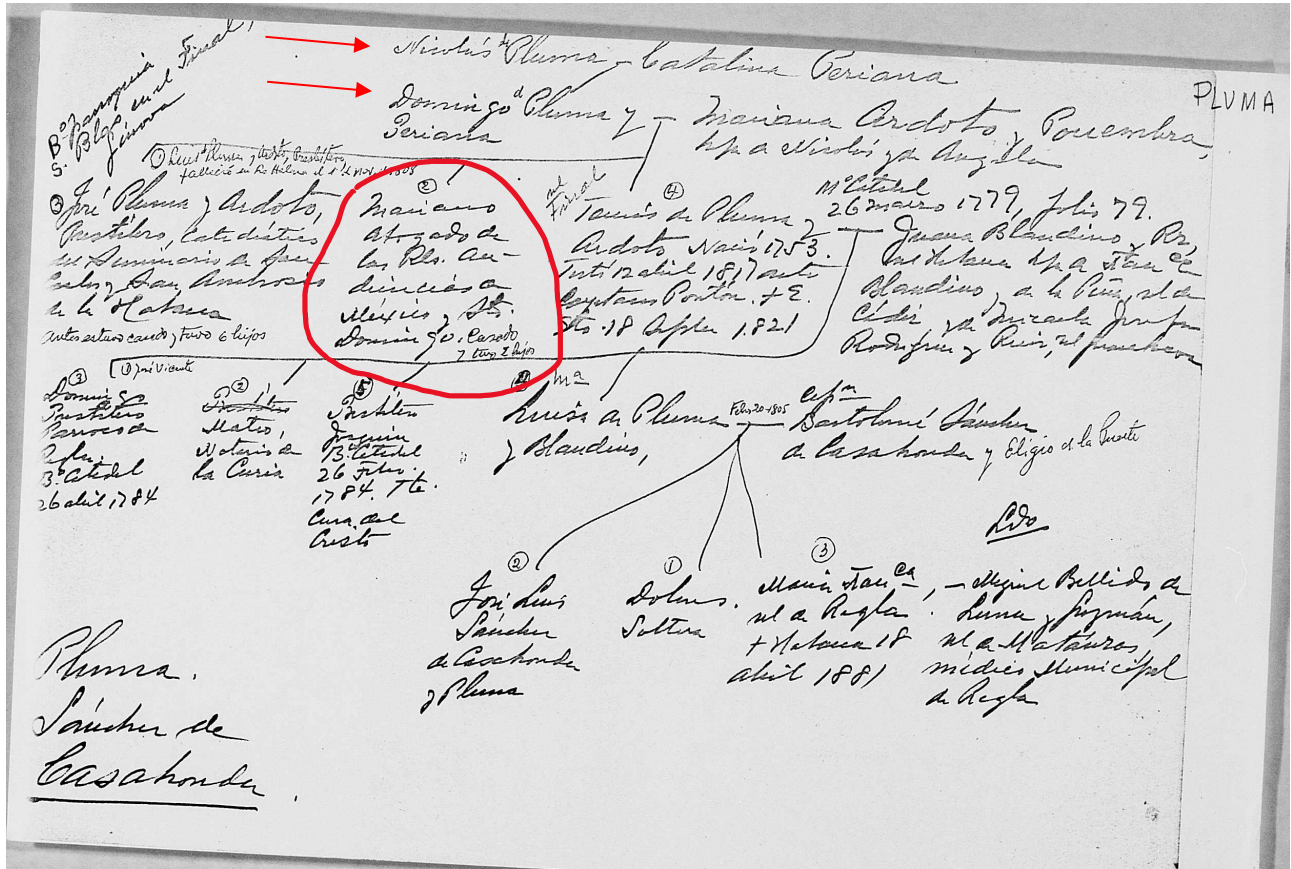 PLUMA
Bº Parroquia
S. Blas en el Finál,
Génova
Nicolás de Pluma — Catalina Periana
Domingo d Pluma y
Periana
— Mariana Ardoto y
hja d Nicolás y de Angela
① Luis Pluma y Ardoto, Presbítero,
falleció en La Habana el 1º d Nov. 1805
③ José Pluma y Ardoto,
Presbítero, Catedrático
del Seminario de San
Carlos y San Ambrosio
de la Habana
antes estuvo casado y tuvo 6 hijos
②
Mariano
Abogado de
las Rls. Au-
diencias de
México y Sto.
Domingo. Casado
y tuvo 2 hijos
nl
Finál
④
Tomás de Pluma y
Ardoto Nació 1753.
Testó 12 abril 1817 ante
Cayetano Pontón. + E.
Sto. 18 Septbre 1821
Mº Catedral
26 marzo 1779, folio 79.
Juana Blandino y Rz,
Blandino y de la Peña, nl de
Cádiz, y de Micaela Josefa
Rodríguez y Ruiz,
① José Vicente
③
Domingo
Presbítero
Párroco de
Regla.
Bº Catedral
26 abril 1784
②
Mateo,
Notario de
la Curia
⑤
Presbítero
Joaquín
Bº Catedral
26 Febro.
1784. Tte.
Cura del
Cristo
④ mª
Luisa de Pluma
y Blandino,
Febº 20-1805
capn
Bartolomé Sánchez
de Casahonda y Eligio de la Puente
②
José Luis
Sánchez
de Casahonda
y Pluma
①
Dolores.
Soltera
③
María Franca,
nl de Regla.
+ Habana 18
abril 1881
Ldo
— Miguel Bellido de
Luna y Guzmán,
nl de Matanzas,
médico Municipal
de Regla
Pluma.
Sánchez de
Casahonda.